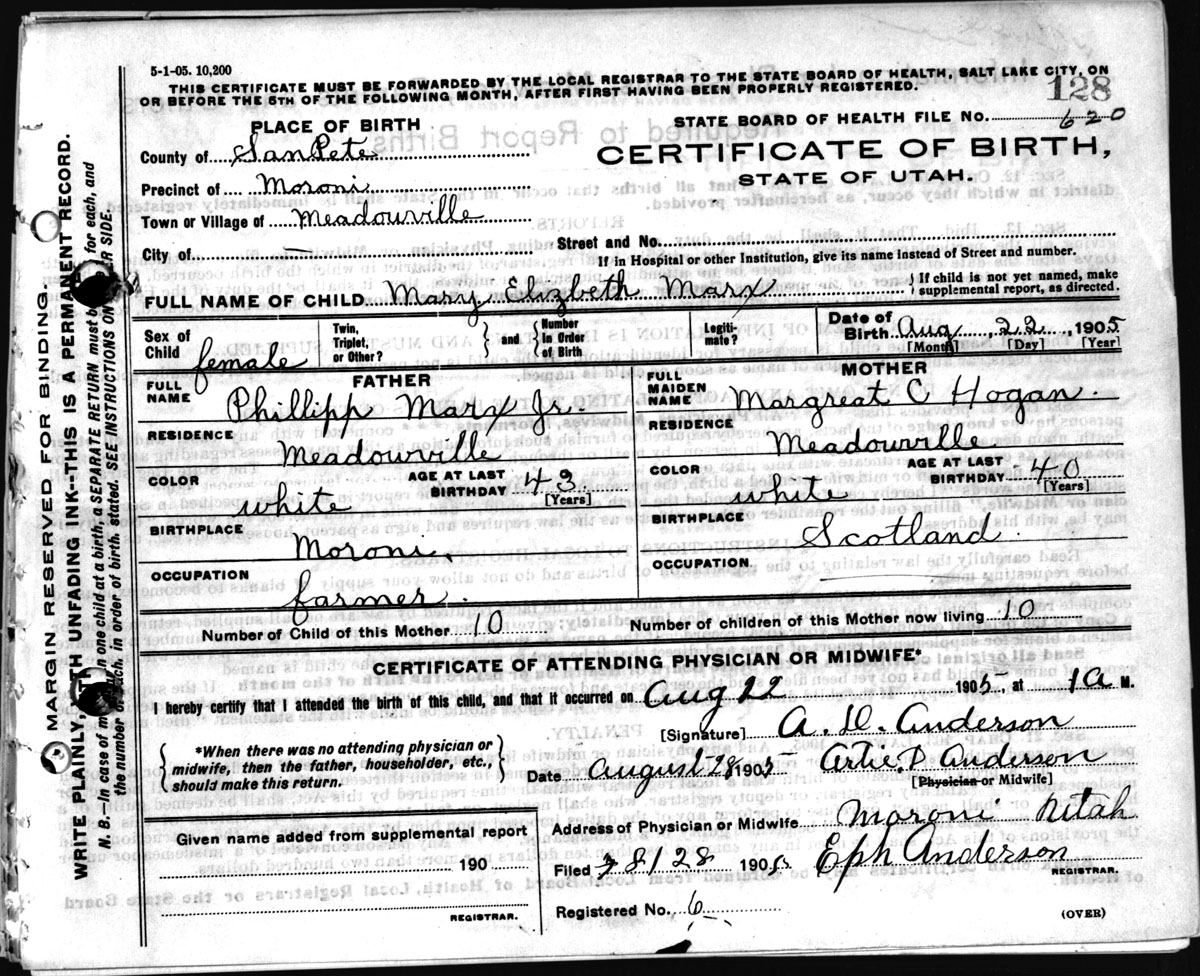 5-1-05. 10,200
THIS CERTIFICATE MUST BE FORWARDED BY THE LOCAL REGISTRAR TO THE STATE BOARD OF HEALTH, SALT LAKE CITY, ON
OR BEFORE THE 5TH OF THE FOLLOWING MONTH, AFTER FIRST HAVING BEEN PROPERLY REGISTERED.
128
PLACE OF BIRTH
STATE BOARD OF HEALTH FILE No. 620
County of SanPete
CERTIFICATE OF BIRTH,
STATE OF UTAH.
Precinct of Moroni
Town or Village of Meadowville
City of — Street and No.
If in Hospital or other Institution, give its name instead of Street and number.
FULL NAME OF CHILD Mary Elizbeth Marx { If child is not yet named, make
supplemental report, as directed.
Sex of Child female
Twin, Triplet, or Other? } and { Number in Order of Birth
Legitimate?
Date of Birth Aug 22, 1905
[Month] [Day] [Year]
FATHER
FULL NAME Phillipp Marx Jr.
RESIDENCE Meadowville
COLOR white AGE AT LAST BIRTHDAY 43 [Years]
BIRTHPLACE Moroni.
OCCUPATION farmer.
MOTHER
FULL MAIDEN NAME Margreat C Hogan.
RESIDENCE Meadowville
COLOR white AGE AT LAST BIRTHDAY 40 [Years]
BIRTHPLACE Scotland.
OCCUPATION.
Number of Child of this Mother 10 Number of children of this Mother now living 10
CERTIFICATE OF ATTENDING PHYSICIAN OR MIDWIFE*
I hereby certify that I attended the birth of this child, and that it occurred on Aug 22 1905, at 1 A M.
[Signature] A. D. Anderson
{ *When there was no attending physician or
midwife, then the father, householder, etc.,
should make this return. }
Date August 28 1905 Artie. P. Anderson
[Physician or Midwife]
Given name added from supplemental report
190
REGISTRAR.
Address of Physician or Midwife Moroni Utah
Filed 8/28 1905. Eph Anderson
REGISTRAR.
Registered No. 6
(OVER)
MARGIN RESERVED FOR BINDING.
WRITE PLAINLY, WITH UNFADING INK--THIS IS A PERMANENT RECORD.
N. B.--In case of more than one child at a birth, a SEPARATE RETURN must be made for each, and
the number of each, in order of birth, stated. SEE INSTRUCTIONS ON OTHER SIDE.